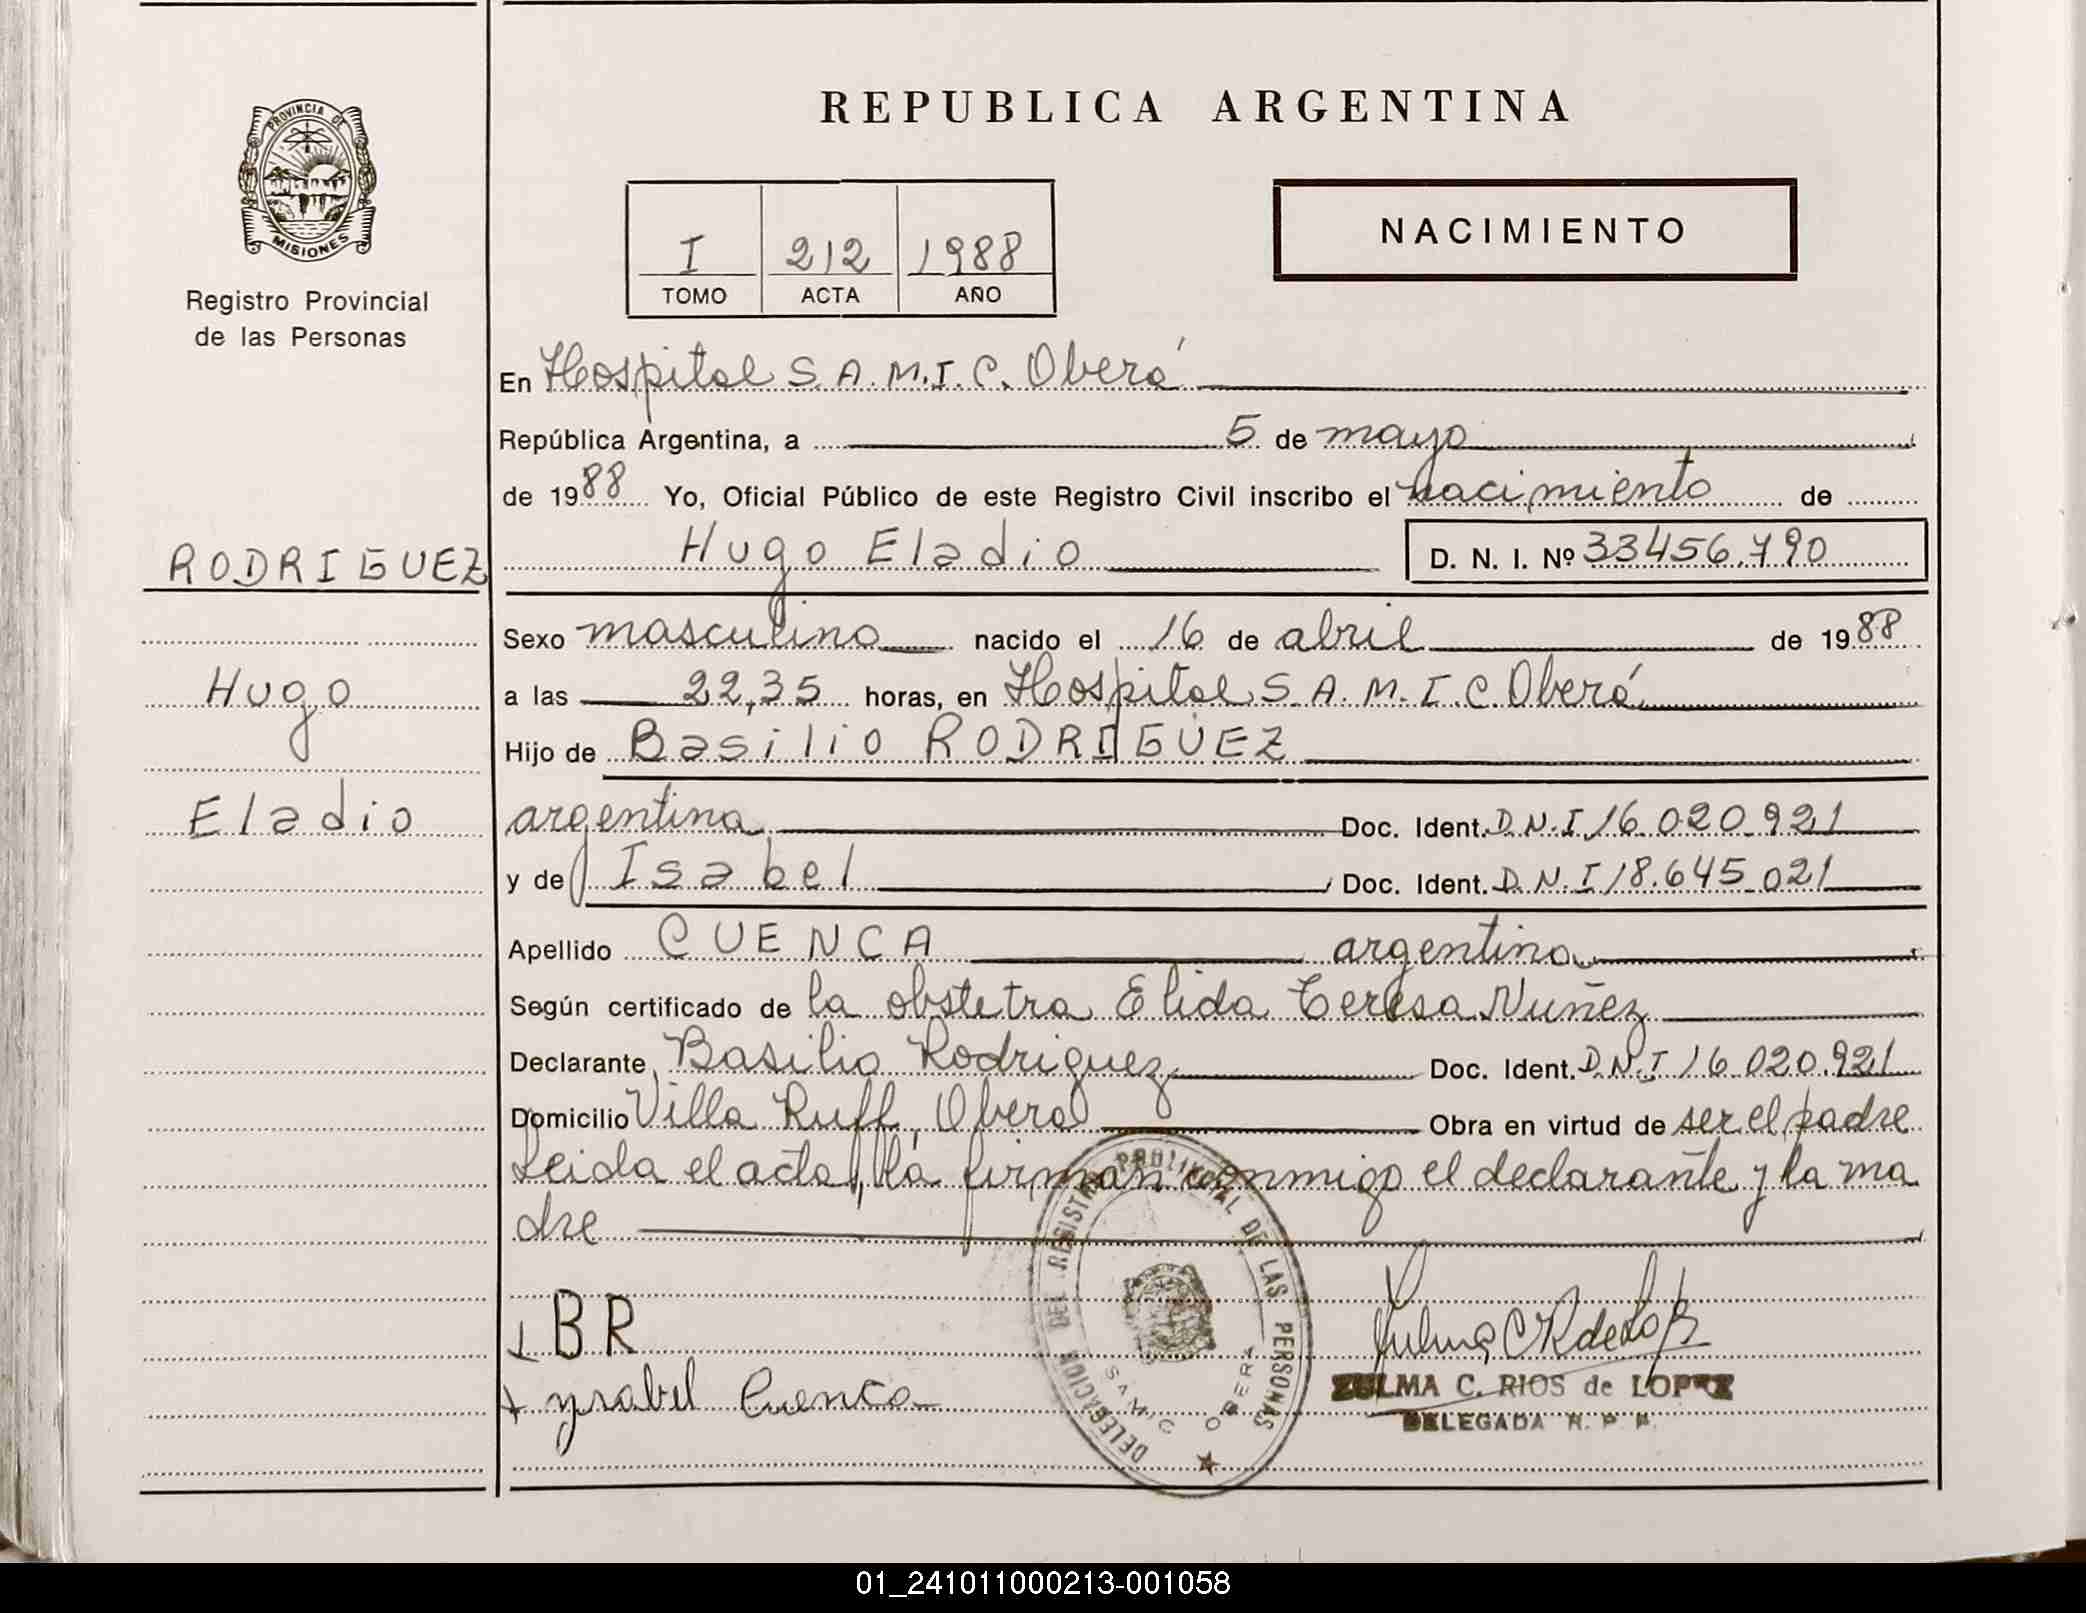 REPUBLICA ARGENTINA
PROVINCIA DE
MISIONES
Registro Provincial
de las Personas
I 212 1988
TOMO ACTA AÑO
NACIMIENTO
En Hospital S.A.M.I.C. Oberá
República Argentina, a 5 de mayo
de 1988 Yo, Oficial Público de este Registro Civil inscribo el nacimiento de
RODRIGUEZ
Hugo Eladio D. N. I. Nº 33456.790
Sexo masculino nacido el 16 de abril de 1988
Hugo
a las 22,35 horas, en Hospital S.A.M.I.C. Oberá
Hijo de Basilio RODRIGUEZ
Eladio
argentina Doc. Ident. D.N.I 16.020.921
y de Isabel Doc. Ident. D.N.I 18.645.021
Apellido CUENCA argentina
Según certificado de la obstetra Elida Teresa Nuñez
Declarante Basilio Rodriguez Doc. Ident. D.N.I 16.020.921
Domicilio Villa Ruff, Oberá Obra en virtud de ser el padre
Leida el acta, la firman conmigo el declarante y la ma
dre
BR
ysabel Cuenca
DELEGACION DEL REGISTRO PROVINCIAL DE LAS PERSONAS
SAMIC OBERA
Zulma C R de Lopez
ZULMA C. RIOS de LOPEZ
DELEGADA R. P. P.
01_241011000213-001058